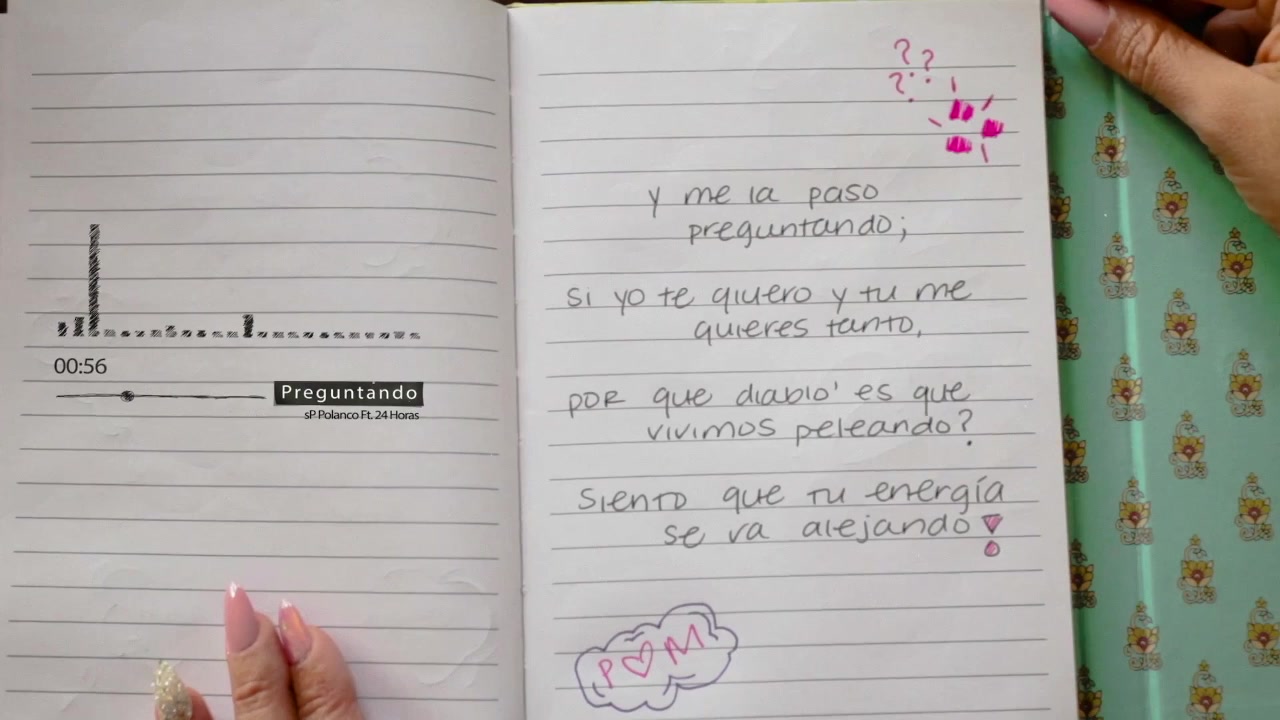 00:56
Preguntando
sP Polanco Ft. 24 Horas
? ?
?
Y me la paso
preguntando;
si yo te qiuero y tu me
quieres tanto,
por que diablo' es que
vivimos peleando?
Siento que tu energía
se va alejando!
P♡M